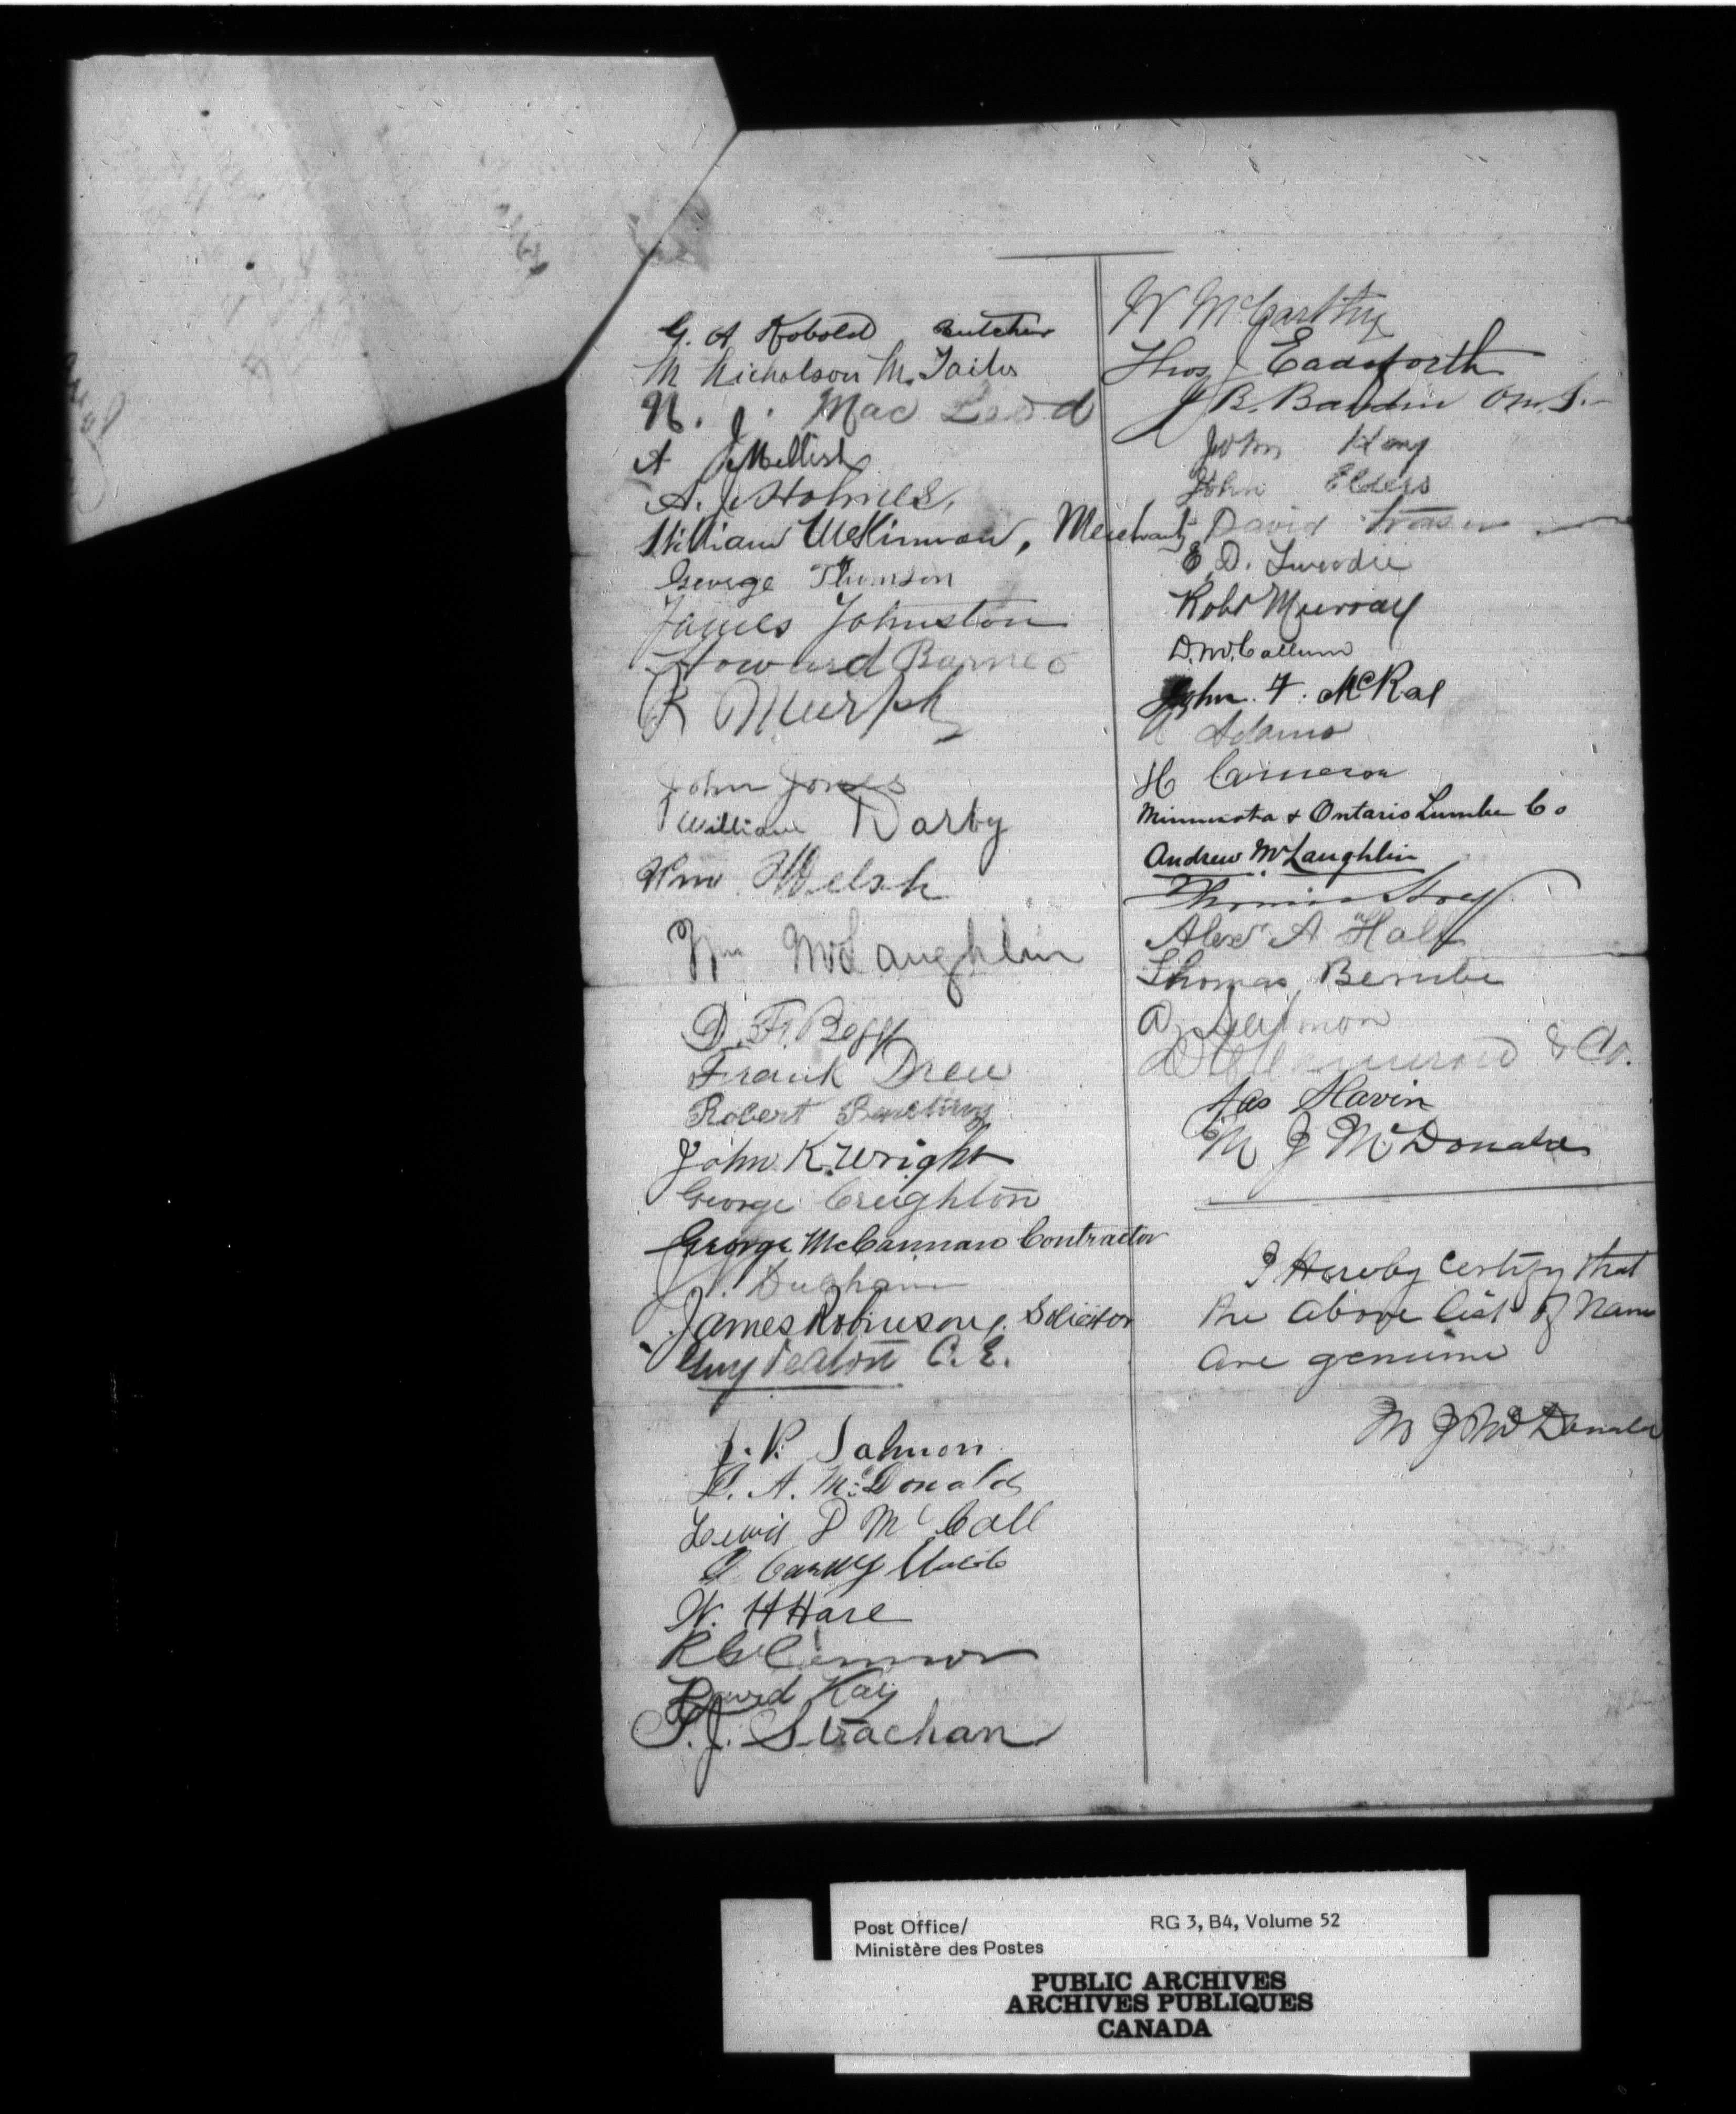 G. A Kobold Butcher
M Nicholson M. Tailor
N. J. Mac Leod
A J Mellish
A. J. Holmes,
William McKinnon, Merchant
George Thomson
James Johnston
Howard Barnes
R Murphy
John Jones
William Darby
Wm Welsh
Wm McLaughlin
D. F. Begg
Frank Drew
Robert
John K. Wright
George Creighton
George McCannan Contractor
J. Dugham
James Robinson, Solicitor
Guy C. E.
J. P. Salmon
A. McDonald
Lewis D McCall
W. H Hare
David Kay
T. J. Strachan
W McCarthy
Thos J Eadsforth
J B. Baudin
John King
John Elders
David Fraser
E. D. Tweedie
Robt Murray
D. McCallum
John. F. McRae
Adams
H Cameron
Minnesota & Ontario Lumber Co
Andrew McLaughlin
Thomas
Alexr A Hall
Thomas Berube
& Co.
Jas Slavin
M J McDonald
I Hereby Certify that
the above list of Name
are genuine
M J McDonald
Post Office/
Ministère des Postes
RG 3, B4, Volume 52
PUBLIC ARCHIVES
ARCHIVES PUBLIQUES
CANADA